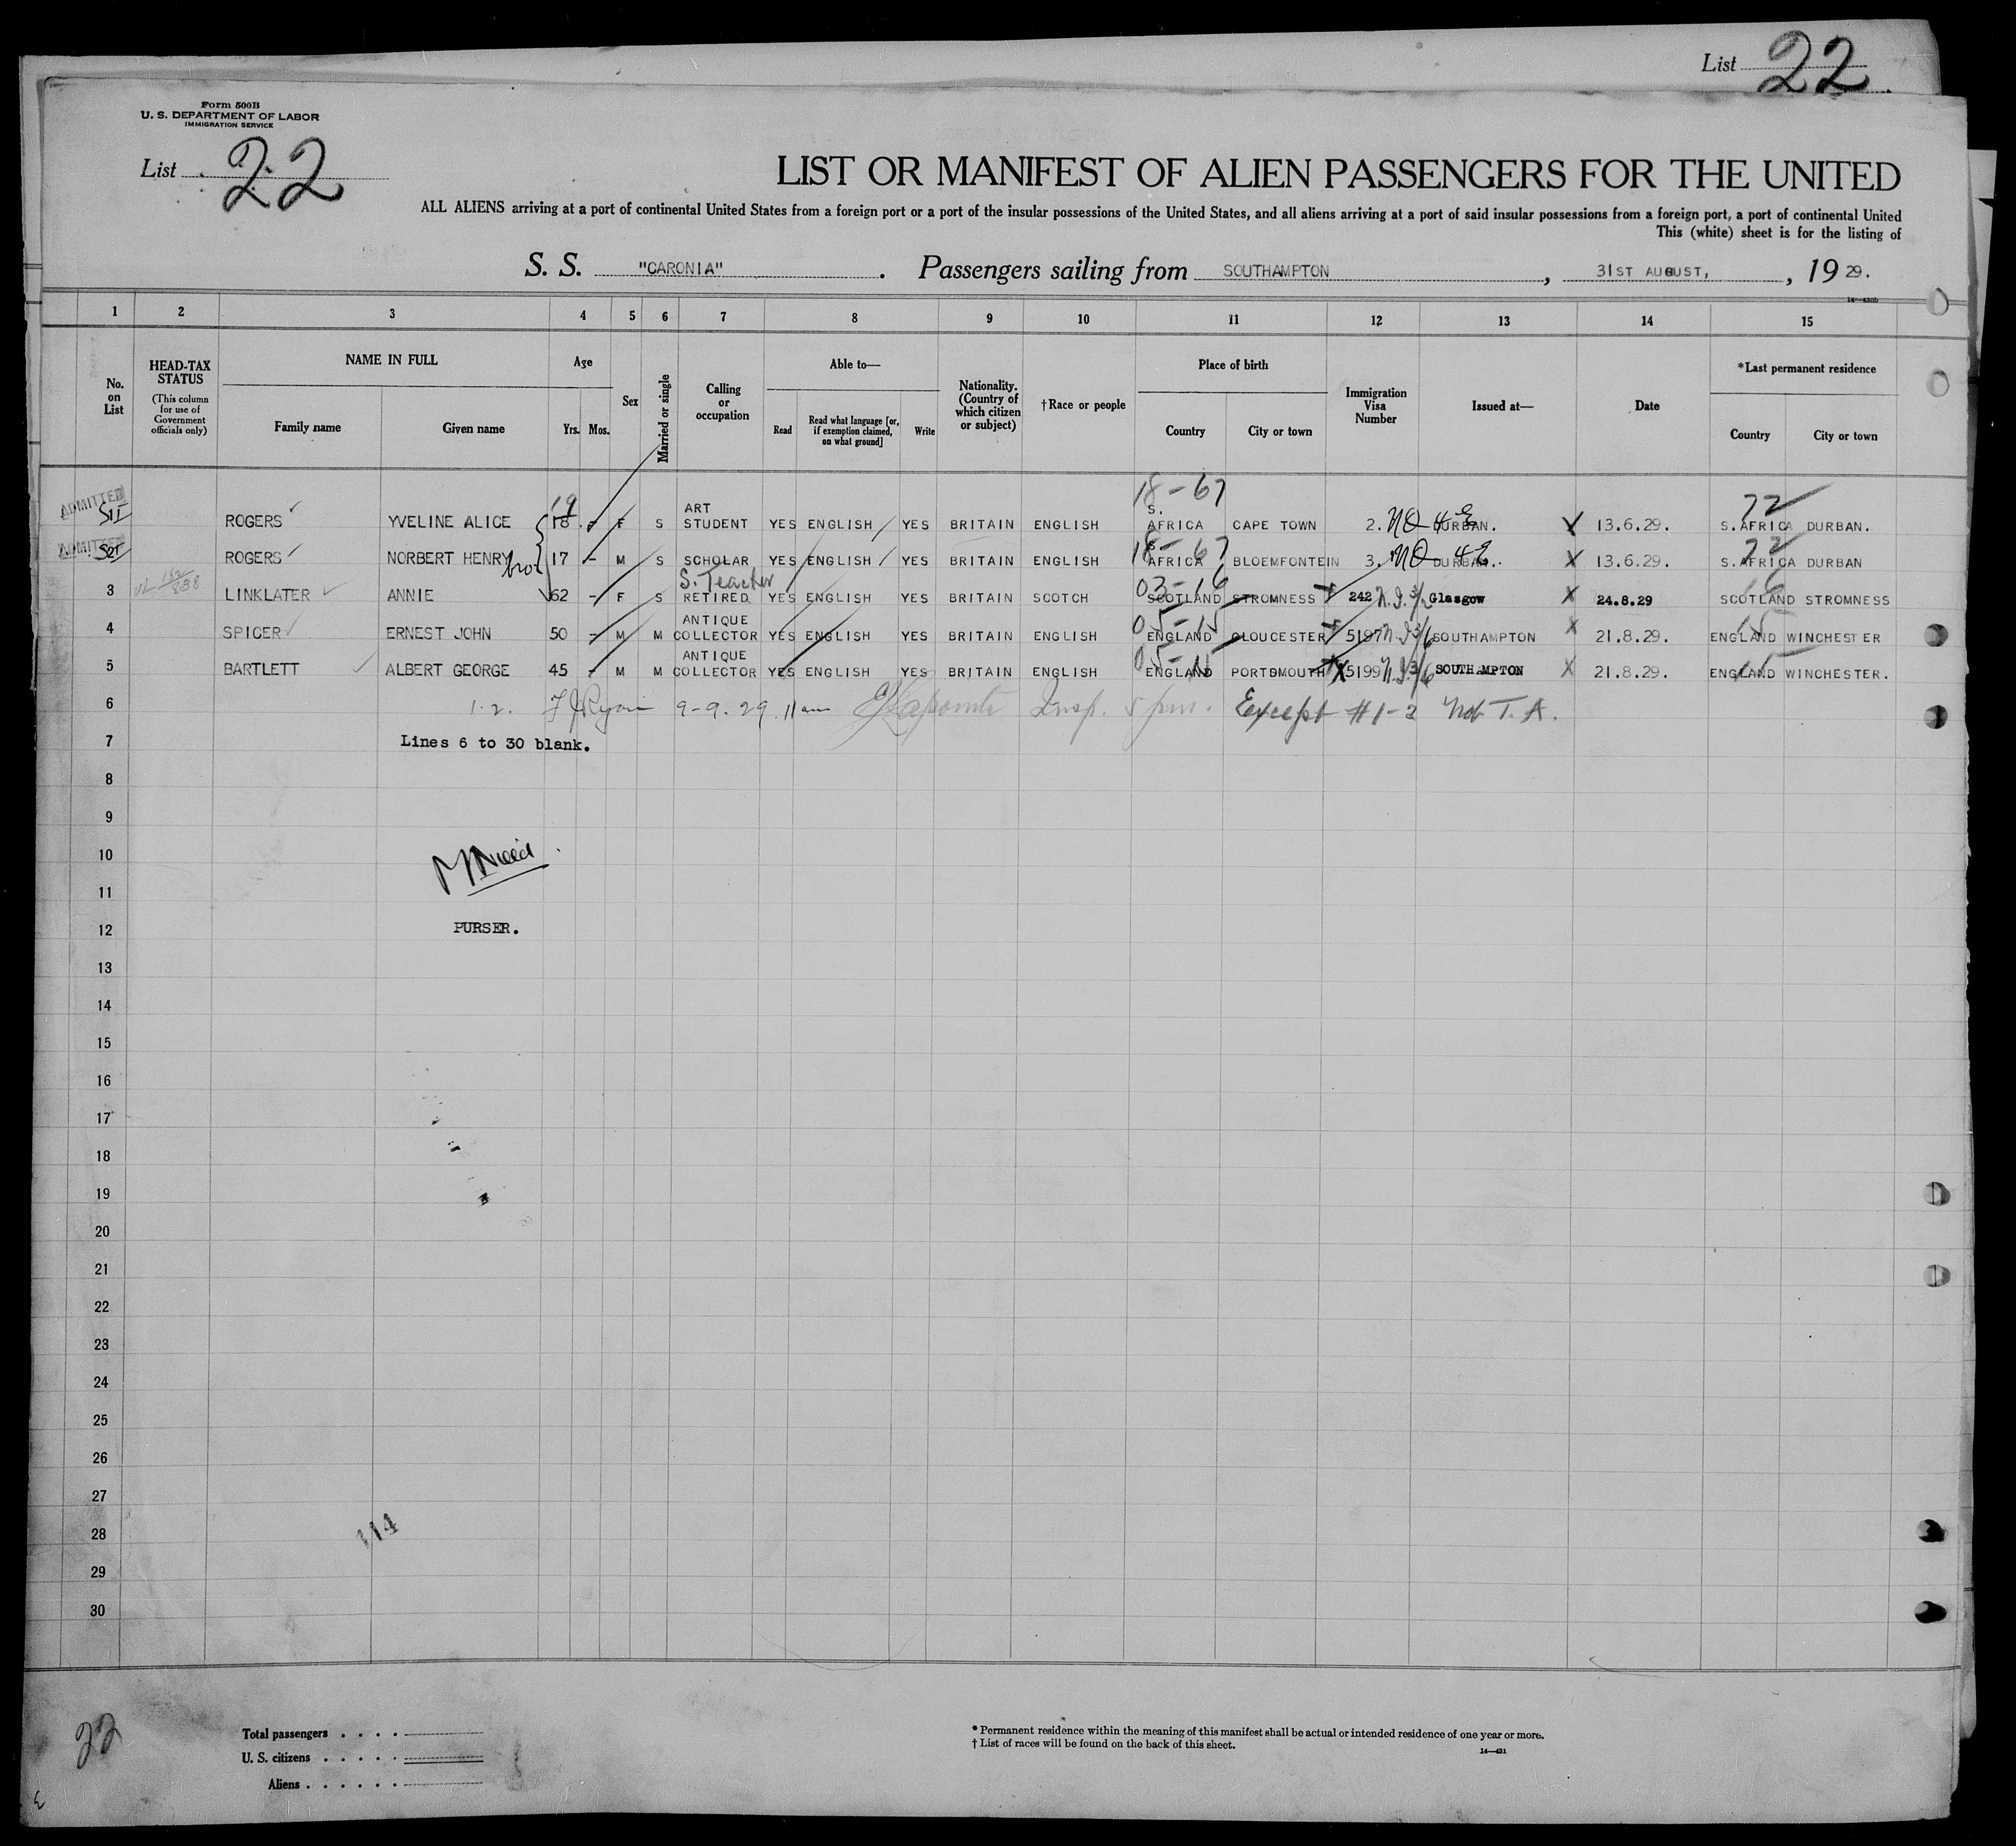 List 22
Form 500B
U. S. DEPARTMENT OF LABOR
IMMIGRATION SERVICE
List 22
LIST OR MANIFEST OF ALIEN PASSENGERS FOR THE UNITED
ALL ALIENS arriving at a port of continental United States from a foreign port or a port of the insular possessions of the United States, and all aliens arriving at a port of said insular possessions from a foreign port, a port of continental United
This (white) sheet is for the listing of
S. S. "CARONIA". Passengers sailing from SOUTHAMPTON, 31ST AUGUST, , 19 29.
1 2 3 4 5 6 7 8 9 10 11 12 13 14 15
No. on List
HEAD-TAX STATUS
(This column for use of Government officials only)
NAME IN FULL
Family name Given name
Age
Yrs. Mos.
Sex
Married or single
Calling or occupation
Able to—
Read Read what language [or, if exemption claimed, on what ground] Write
Nationality. (Country of which citizen or subject)
†Race or people
Place of birth
Country City or town
Immigration Visa Number
Issued at—
Date
*Last permanent residence
Country City or town
18-67
ADMITTED ROGERS YVELINE ALICE 19 18 - F S ART STUDENT YES ENGLISH YES BRITAIN ENGLISH S. AFRICA CAPE TOWN 2. NQ 4E DURBAN. 13.6.29. 72 S.AFRICA DURBAN.
ADMITTED ROGERS NORBERT HENRY bro 17 - M S SCHOLAR YES ENGLISH YES BRITAIN ENGLISH 18-67 AFRICA BLOEMFONTEIN 3. NQ 4E DURBAN. 13.6.29. 72 S.AFRICA DURBAN
3 LINKLATER ANNIE 62 - F S S. Teacher RETIRED YES ENGLISH YES BRITAIN SCOTCH 03-16 SCOTLAND STROMNESS 242 Glasgow 24.8.29 16 SCOTLAND STROMNESS
4 SPICER ERNEST JOHN 50 - M M ANTIQUE COLLECTOR YES ENGLISH YES BRITAIN ENGLISH 05-15 ENGLAND GLOUCESTER 5197 SOUTHAMPTON 21.8.29. 15 ENGLAND WINCHESTER
5 BARTLETT ALBERT GEORGE 45 - M M ANTIQUE COLLECTOR YES ENGLISH YES BRITAIN ENGLISH ENGLAND PORTSMOUTH 5199 SOUTH MPTON 21.8.29. 15 ENGLAND WINCHESTER.
6 1-2. F J Ryan 9-9.29 11 am Insp. 5 pm. Except #1-2 Not T.A.
7 Lines 6 to 30 blank.
8
9
10
11
12 PURSER.
13
14
15
16
17
18
19
20
21
22
23
24
25
26
27
28 114
29
30
22
Total passengers . . . .
U. S. citizens . . . . .
Aliens . . . . . .
* Permanent residence within the meaning of this manifest shall be actual or intended residence of one year or more.
† List of races will be found on the back of this sheet.
14—431